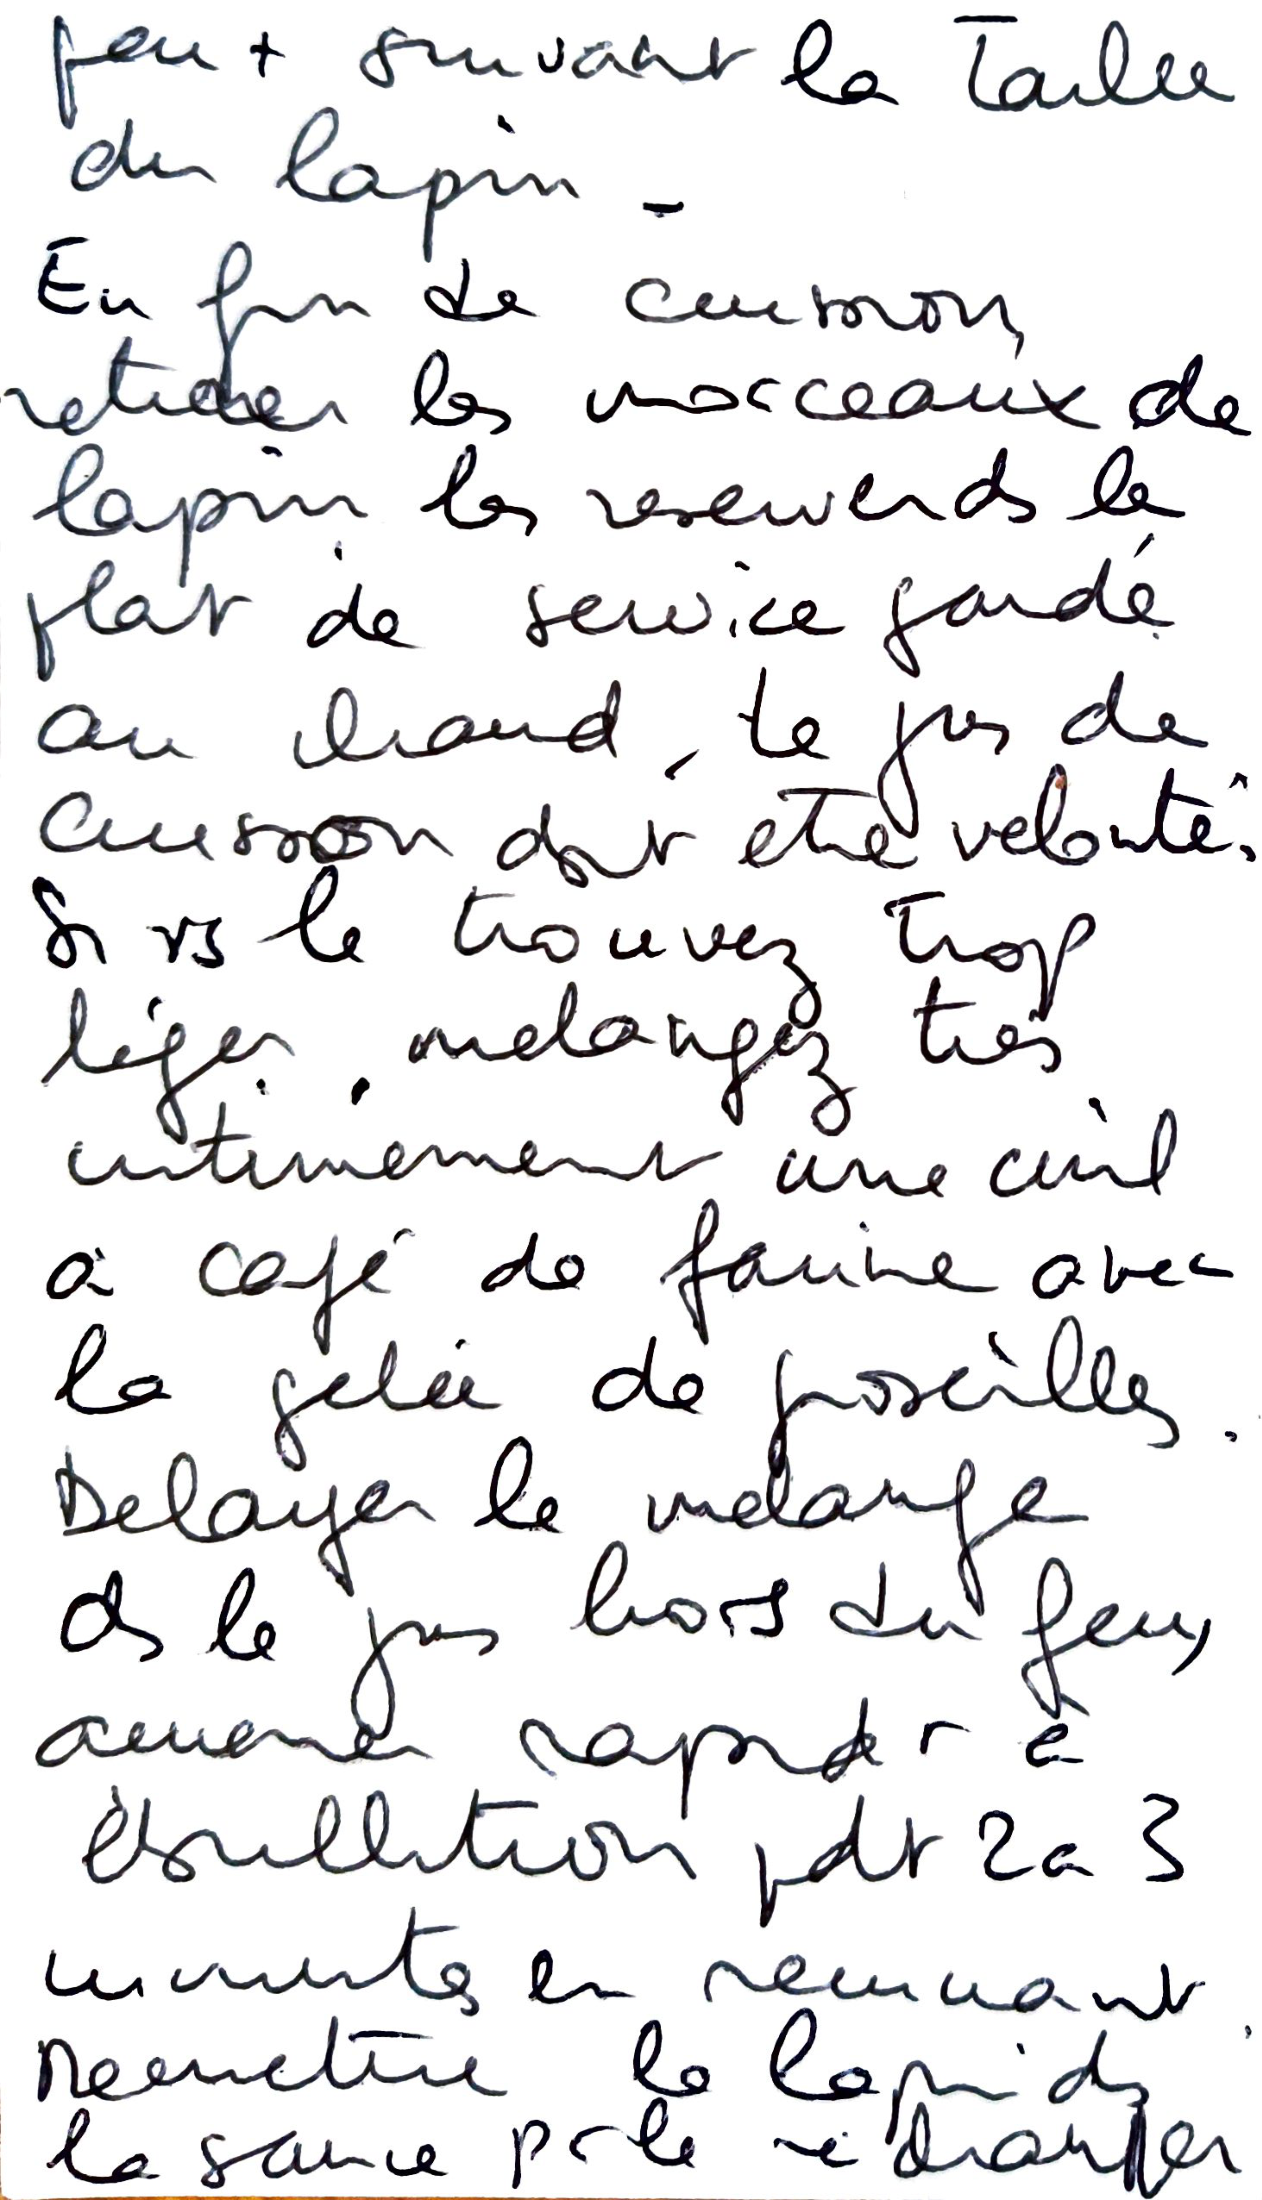 peu + suivant la Taille
du lapin _
En fin de cuisson,
retirer les morceaux de
lapin, les reserver ds le
plat de service gardé
au chaud, le jus de
cuisson doit etre velouté.
Si vs le trouvez trop
léger, melangez très
intimement une cuil
à café de farine avec
la gelée de groseilles.
Delayer le melange
ds le jus hors du feu,
amener rapidt à
ébullition pdt 2 a 3
minutes en remuant.
Remettre le lapin ds
la sauce pr le réchauffer